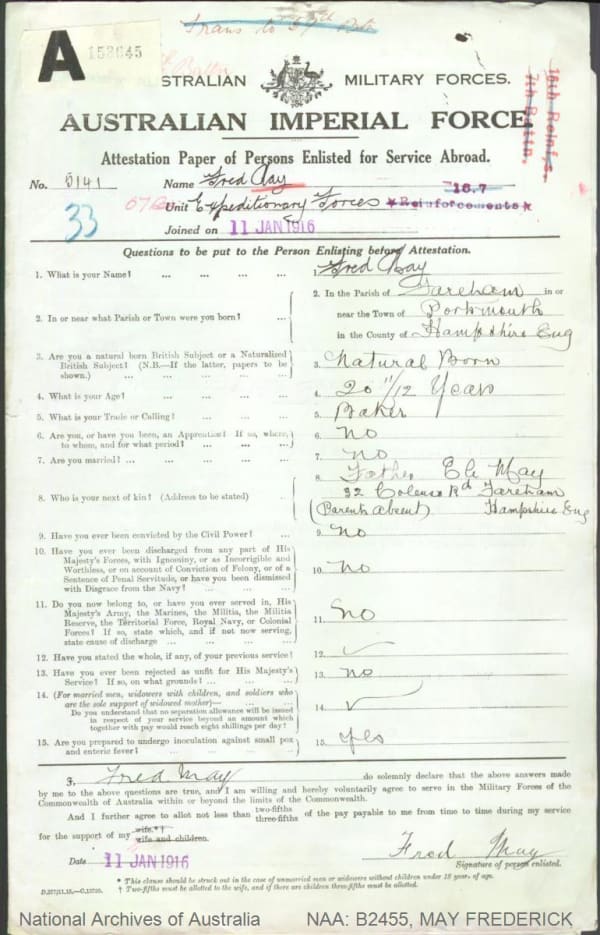 Trans to 57th Batn
A 153645
Battn
AUSTRALIAN MILITARY FORCES.
AUSTRALIAN IMPERIAL FORCE.
16th Reinf's.
7th Battn.
Attestation Paper of Persons Enlisted for Service Abroad.
No. 5141 Name Fred May
33
Unit Expeditionary Forces 16.7 Reinforcements
Joined on 11 JAN 1916
Questions to be put to the Person Enlisting before Attestation.
1. What is your Name? ... ... ... ... 1. Fred May
2. In or near what Parish or Town were you born? ... 2. In the Parish of Fareham in or
near the Town of Portsmouth
in the County of Hampshire Eng
3. Are you a natural born British Subject or a Naturalized
British Subject? (N.B.—If the latter, papers to be
shown.) ... ... ... ... 3. Natural Born
4. What is your Age? ... ... ... ... 4. 20 11/12 Years
5. What is your Trade or Calling? ... ... ... 5. Baker
6. Are you, or have you been, an Apprentice? If so, where,
to whom, and for what period? ... ... ... 6. No
7. Are you married? ... ... ... ... 7. No
8. Who is your next of kin? (Address to be stated) .. 8. Father Eli May
32 Colenso Rd Fareham
(Parents absent) Hampshire Eng
9. Have you ever been convicted by the Civil Power? ... 9. No
10. Have you ever been discharged from any part of His
Majesty's Forces, with Ignominy, or as Incorrigible and
Worthless, or on account of Conviction of Felony, or of a
Sentence of Penal Servitude, or have you been dismissed
with Disgrace from the Navy? ... ... ... 10. No
11. Do you now belong to, or have you ever served in, His
Majesty's Army, the Marines, the Militia, the Militia
Reserve, the Territorial Force, Royal Navy, or Colonial
Forces? If so, state which, and if not now serving,
state cause of discharge ... ... ... ... 11. No
12. Have you stated the whole, if any, of your previous service? 12.
13. Have you ever been rejected as unfit for His Majesty's
Service? If so, on what grounds? ... ... ... 13. No
14. (For married men, widowers with children, and soldiers who
are the sole support of widowed mother)—
Do you understand that no separation allowance will be issued
in respect of your service beyond an amount which
together with pay would reach eight shillings per day? 14.
15. Are you prepared to undergo inoculation against small pox
and enteric fever? ... ... ... ... 15. Yes
I, Fred May do solemnly declare that the above answers made
by me to the above questions are true, and I am willing and hereby voluntarily agree to serve in the Military Forces of the
Commonwealth of Australia within or beyond the limits of the Commonwealth.
And I further agree to allot not less than two-fifths three-fifths of the pay payable to me from time to time during my service
for the support of my wife.*† wife and children.
Fred May
Date 11 JAN 1916 Signature of person enlisted.
* This clause should be struck out in the case of unmarried men or widowers without children under 18 years of age.
† Two-fifths must be allotted to the wife, and if there are children three-fifths must be allotted.
National Archives of Australia NAA: B2455, MAY FREDERICK